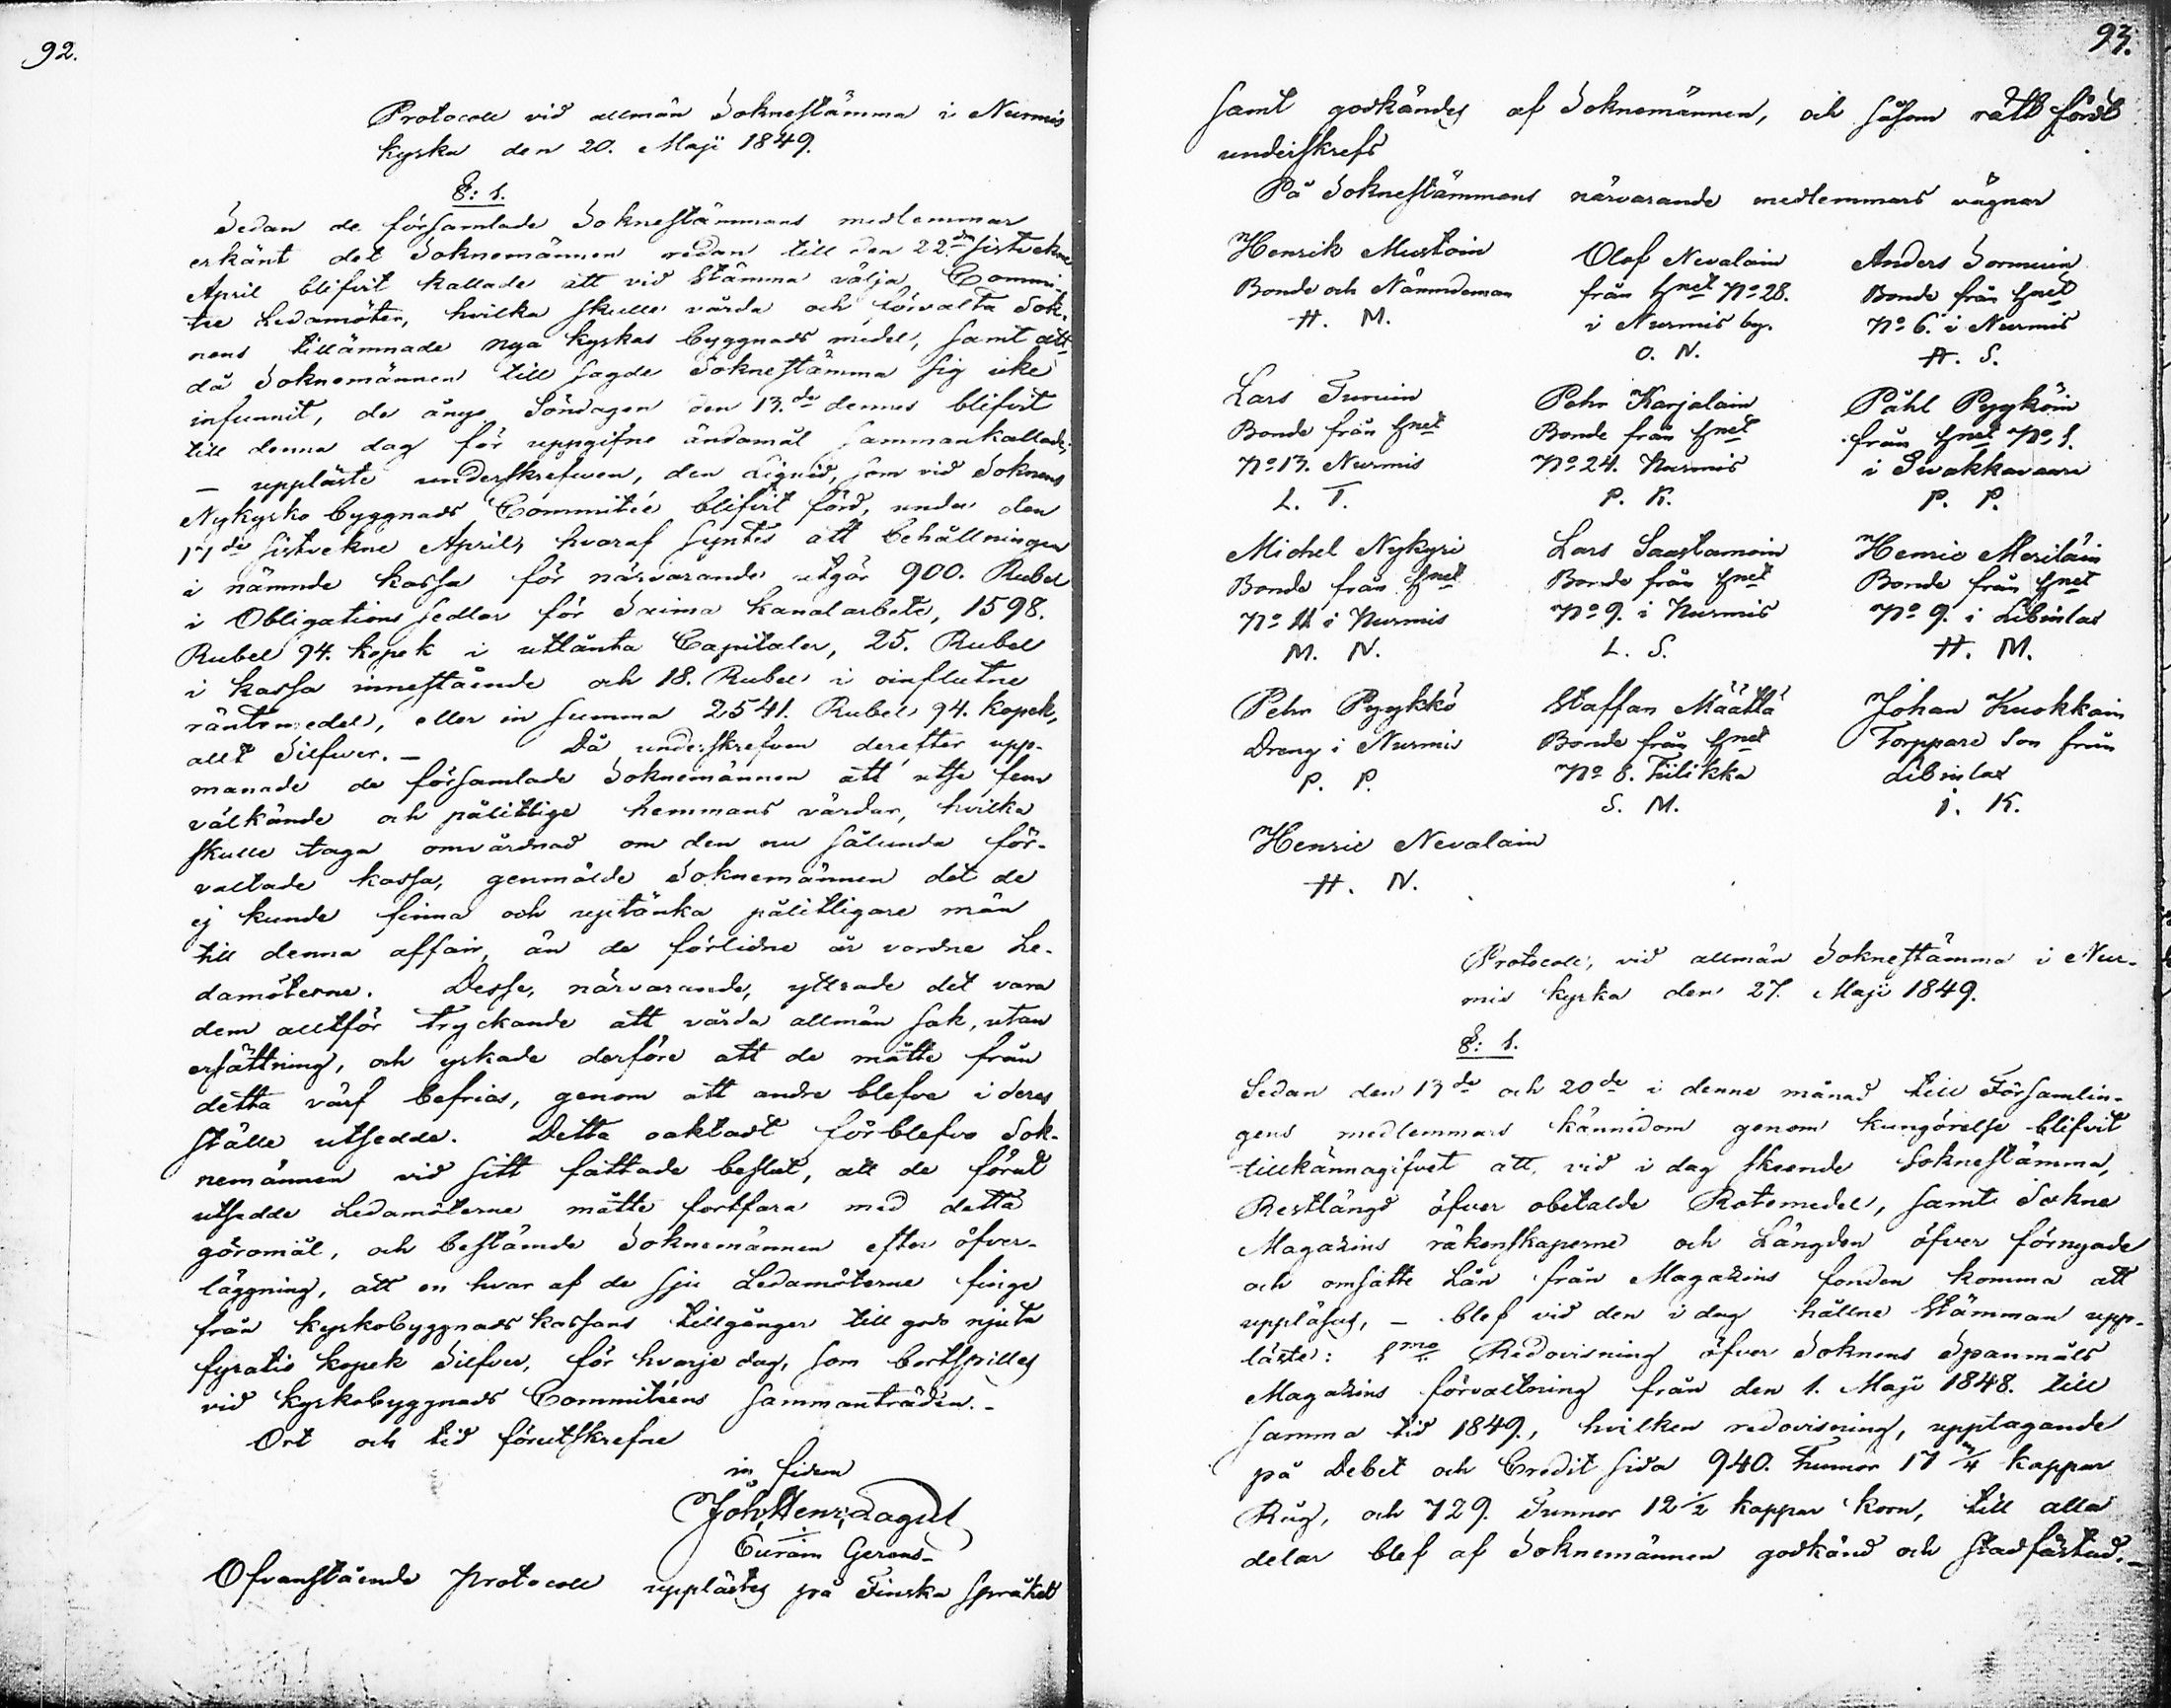 92.
Protocoll vid allmän Soknestämma i Nurmis
kyrka den 20. Maji 1849.
§: 1.
Sedan de församlade Soknestämmans medlemmar
erkänt det Soknemännen redan till den 22dn sistvekne
April blifvit kallade att vid Stämma välja Commi-
tre Ledamöter, hvilka skulle vårda och förvalta Sok-
nens tillämnade nya kyrkas byggnads medel, samt att
då Soknemännen till sagde Soknestämma sig icke
infunnit, de ånyo Söndagen den 13.de dennes blifvit
till denna dag för uppgifne ändamål sammankallade;
– uppläste underskrefven, den Liqvid, som vid Soknens
Nykyrko byggnads Committée blifvit förd, under den
17de sistvekne April, hvaraf syntes att behållningen
i nämnde kassa för närvarande utgör 900. Rubel
i Obligations sedlar för Saima kanalarbete, 1598.
Rubel 94. kopek i utlänta Capitaler, 25. Rubel
i kassa innestående och 18. Rubel i oinflutne
räntemedel, eller in summa 2541. Rubel 94. kopek,
allt Silfver. – Då underskrefven derefter upp-
manade de församlade Soknemännen att utse fem
välkände och pålitlige hemmans värdar, hvilka
skulle taga omvårdnad om den nu sålunda för-
valtade kassa, genmälde Soknemännen det de
ej kunde finna och uptänka pålitligare män
till denna affair, än de förlidne år vordne Le-
damöterne. Desse, närvarande, yttrade det vara
dem alltför tryckande att vårda allmän sak, utan
ersättning, och yrkade derföre att de måtte från
detta värf befrias, genom att andre blefve i deres
ställe utsedde. Detta oaktadt förblefvo Sok-
nemännen vid sitt fattade beslut, att de förut
utsedde Ledamöterne måtte fortfara med detta
göromål, och bestämde Soknemännen efter öfver-
läggning, att en hvar af de sju Ledamöterne finge
från kyrkobyggnads kassans tillgånger till godo njuta
fyratio kopek Silfver, för hvarje dag, som bortspilles
vid kyrkobyggnads Committéens sammanträden.-
Ort och tid förutskrefne
in fidem
Joh: Henr: Lagus
Curam Gerens-
Ofvanstående Protocoll upplästes på Finska språket
93.
samt godkändes af Soknemännen, och såsom rätt fördt
underskrefs
På Soknestämmans närvarande medlemmars vägnar
Henrik Mustoin Olof Nevalain Anders Sormuin
Bonde och Nämndeman från hnet No 28. Bonde från hnet
H. M. i Nurmis by. No 6. i Nurmis
O. N. A. S.
Lars Turuin Pehr Karjalain Påhl Pyyköin
Bonde från hnet Bonde från hnet från hnet No 1.
No 13. Nurmis No 24. Nurmis i Sivakkavaara
L. T. P. K. P. P.
Michel Nykyri Lars Saastamoin Henric Meriläin
Bonde från hnet Bonde från hnet Bonde från hnet
No 11 i Nurmis No 9. i Nurmis No 9. i Libinlax
M. N. L. S. H. M.
Pehr Pyykkö Staffan Määttä Johan Kuokkain
Dreng i Nurmis Bonde från hnet Torppare Son från
P. P. No 8. Tiilikka Libinlax
S. M. J. K.
Henric Nevalain
H. N.
Protocoll, vid allmän Soknestämma i Nur-
mis kyrka den 27. Maji 1849.
§: 1.
Sedan den 13de och 20de i denne månad till Församlin-
gens medlemmars kännedom genom kungörelse blifvit
tillkännagifvet att, vid i dag skeende Soknestämma,
Restlängd öfver obetalde Rotemedel, samt Sokne
Magazins räkenskaperne och Längden öfver förnyade
och omsatte Lån från Magazins fonden komma att
uppläsas, – blef vid den i dag hållne Stämman upp-
läste: 1mo Redovisning öfver Soknens Spanmåls
Magazins förvaltning från den 1. Maji 1848. till
samma tid 1849., hvilken redovisning, upptagande
på Debet och Credit sida 940. Tunnor 17 3/4 kappar
Råg, och 729. Tunnor 12 1/2 kappar korn, till alla
delar blef af Soknemännen godkänd och stadfästad.–